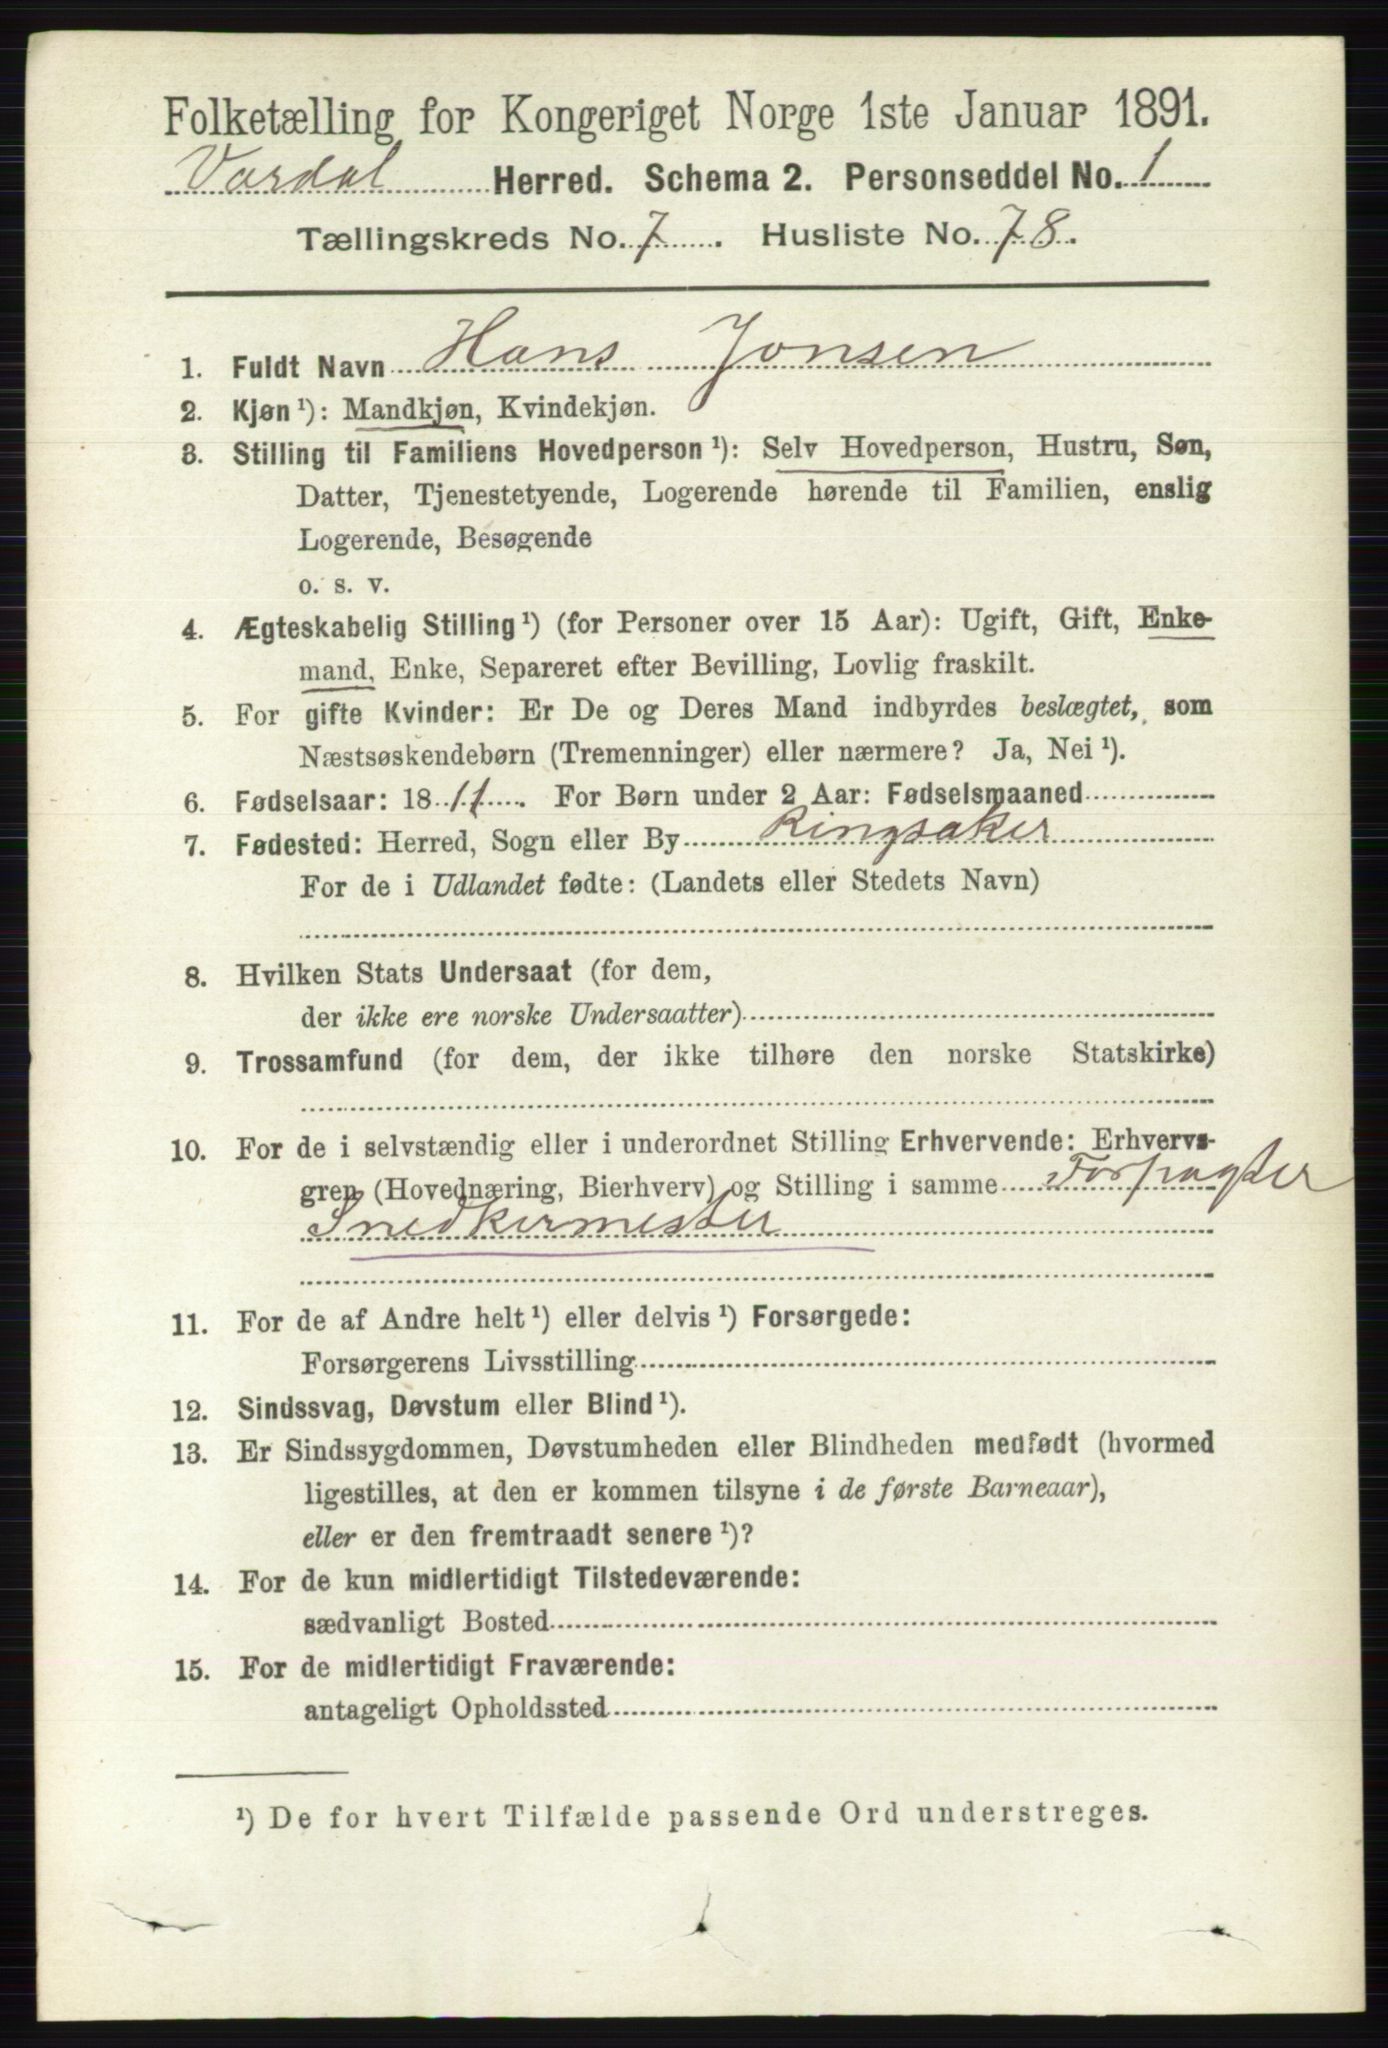 Folketælling for Kongeriget Norge 1ste Januar 1891.
Vardal Herred. Schema 2. Personseddel No. 1
Tællingskreds No. 7. Husliste No. 78.
1. Fuldt Navn Hans Jonsen
2. Kjøn¹): Mandkjøn, Kvindekjøn.
3. Stilling til Familiens Hovedperson¹): Selv Hovedperson, Hustru, Søn,
Datter, Tjenestetyende, Logerende hørende til Familien, enslig
Logerende, Besøgende
o. s. v.
4. Ægteskabelig Stilling¹) (for Personer over 15 Aar): Ugift, Gift, Enke-
mand, Enke, Separeret efter Bevilling, Lovlig fraskilt.
5. For gifte Kvinder: Er De og Deres Mand indbyrdes beslægtet, som
Næstsøskendebørn (Tremenninger) eller nærmere? Ja, Nei¹).
6. Fødselsaar: 1811. For Børn under 2 Aar: Fødselsmaaned
7. Fødested: Herred, Sogn eller By Ringsaker
For de i Udlandet fødte: (Landets eller Stedets Navn)
8. Hvilken Stats Undersaat (for dem,
der ikke ere norske Undersaatter)
9. Trossamfund (for dem, der ikke tilhøre den norske Statskirke)
10. For de i selvstændig eller i underordnet Stilling Erhvervende: Erhvervs-
gren (Hovednæring, Bierhverv) og Stilling i samme Forpagter
Snedkermester
11. For de af Andre helt¹) eller delvis¹) Forsørgede:
Forsørgerens Livsstilling
12. Sindssvag, Døvstum eller Blind¹).
13. Er Sindssygdommen, Døvstumheden eller Blindheden medfødt (hvormed
ligestilles, at den er kommen tilsyne i de første Barneaar),
eller er den fremtraadt senere¹)?
14. For de kun midlertidigt Tilstedeværende:
sædvanligt Bosted
15. For de midlertidigt Fraværende:
antageligt Opholdssted
¹) De for hvert Tilfælde passende Ord understreges.